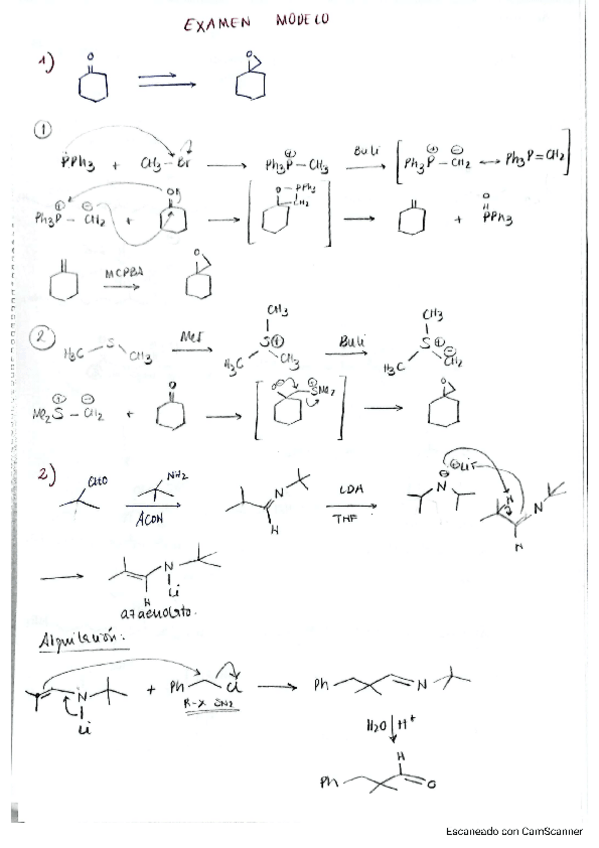 EXAMEN MODELO
1)
O O
①
PPh3 + CH3 – Br Ph3P⊕ – CH3 BuLi [Ph3P⊕ – CH2⊖ ↔ Ph3P = CH2]
Ph3P⊕ – CH2⊖ + O [O – PPh3 CH2] + O PPh3
MCPBA O
② H3C S CH3 MeI CH3 S⊕ H3C CH3 BuLi CH3 S⊕ H3C CH2⊖
Me2S⊕ – CH2⊖ + O [O⊖ ⊕SMe2] O
2)
CHO NH2 ACOH N H LDA THF ⊖ N ⊕Li H N H
N Li H
azaenolato.
Alquilación:
N Li + Ph Cl Ph N
R-X SN2
H2O H+
Ph H O
Escaneado con CamScanner